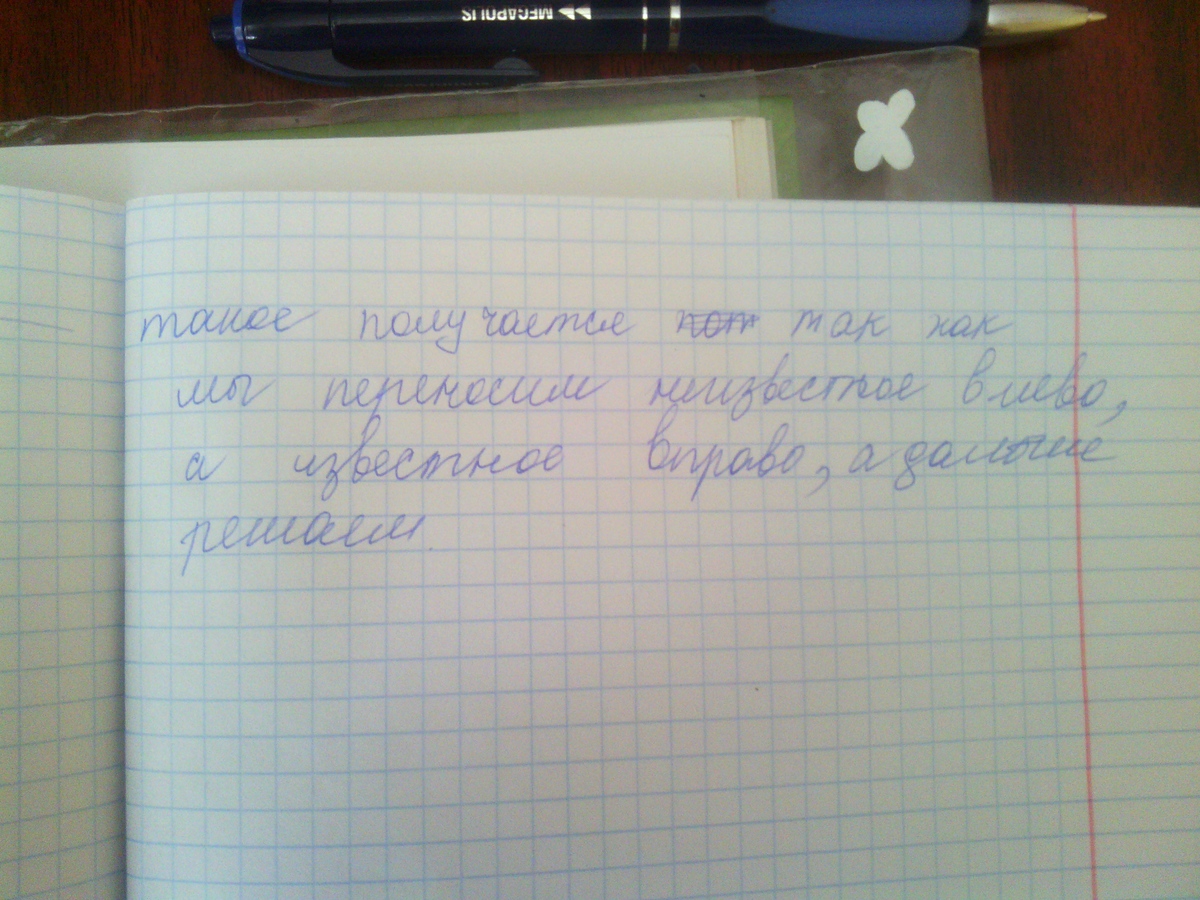 MEGAPOLIS
такое получается пот так как
мы переносим неизвестное влево,
а известное вправо, а дальше
решаем